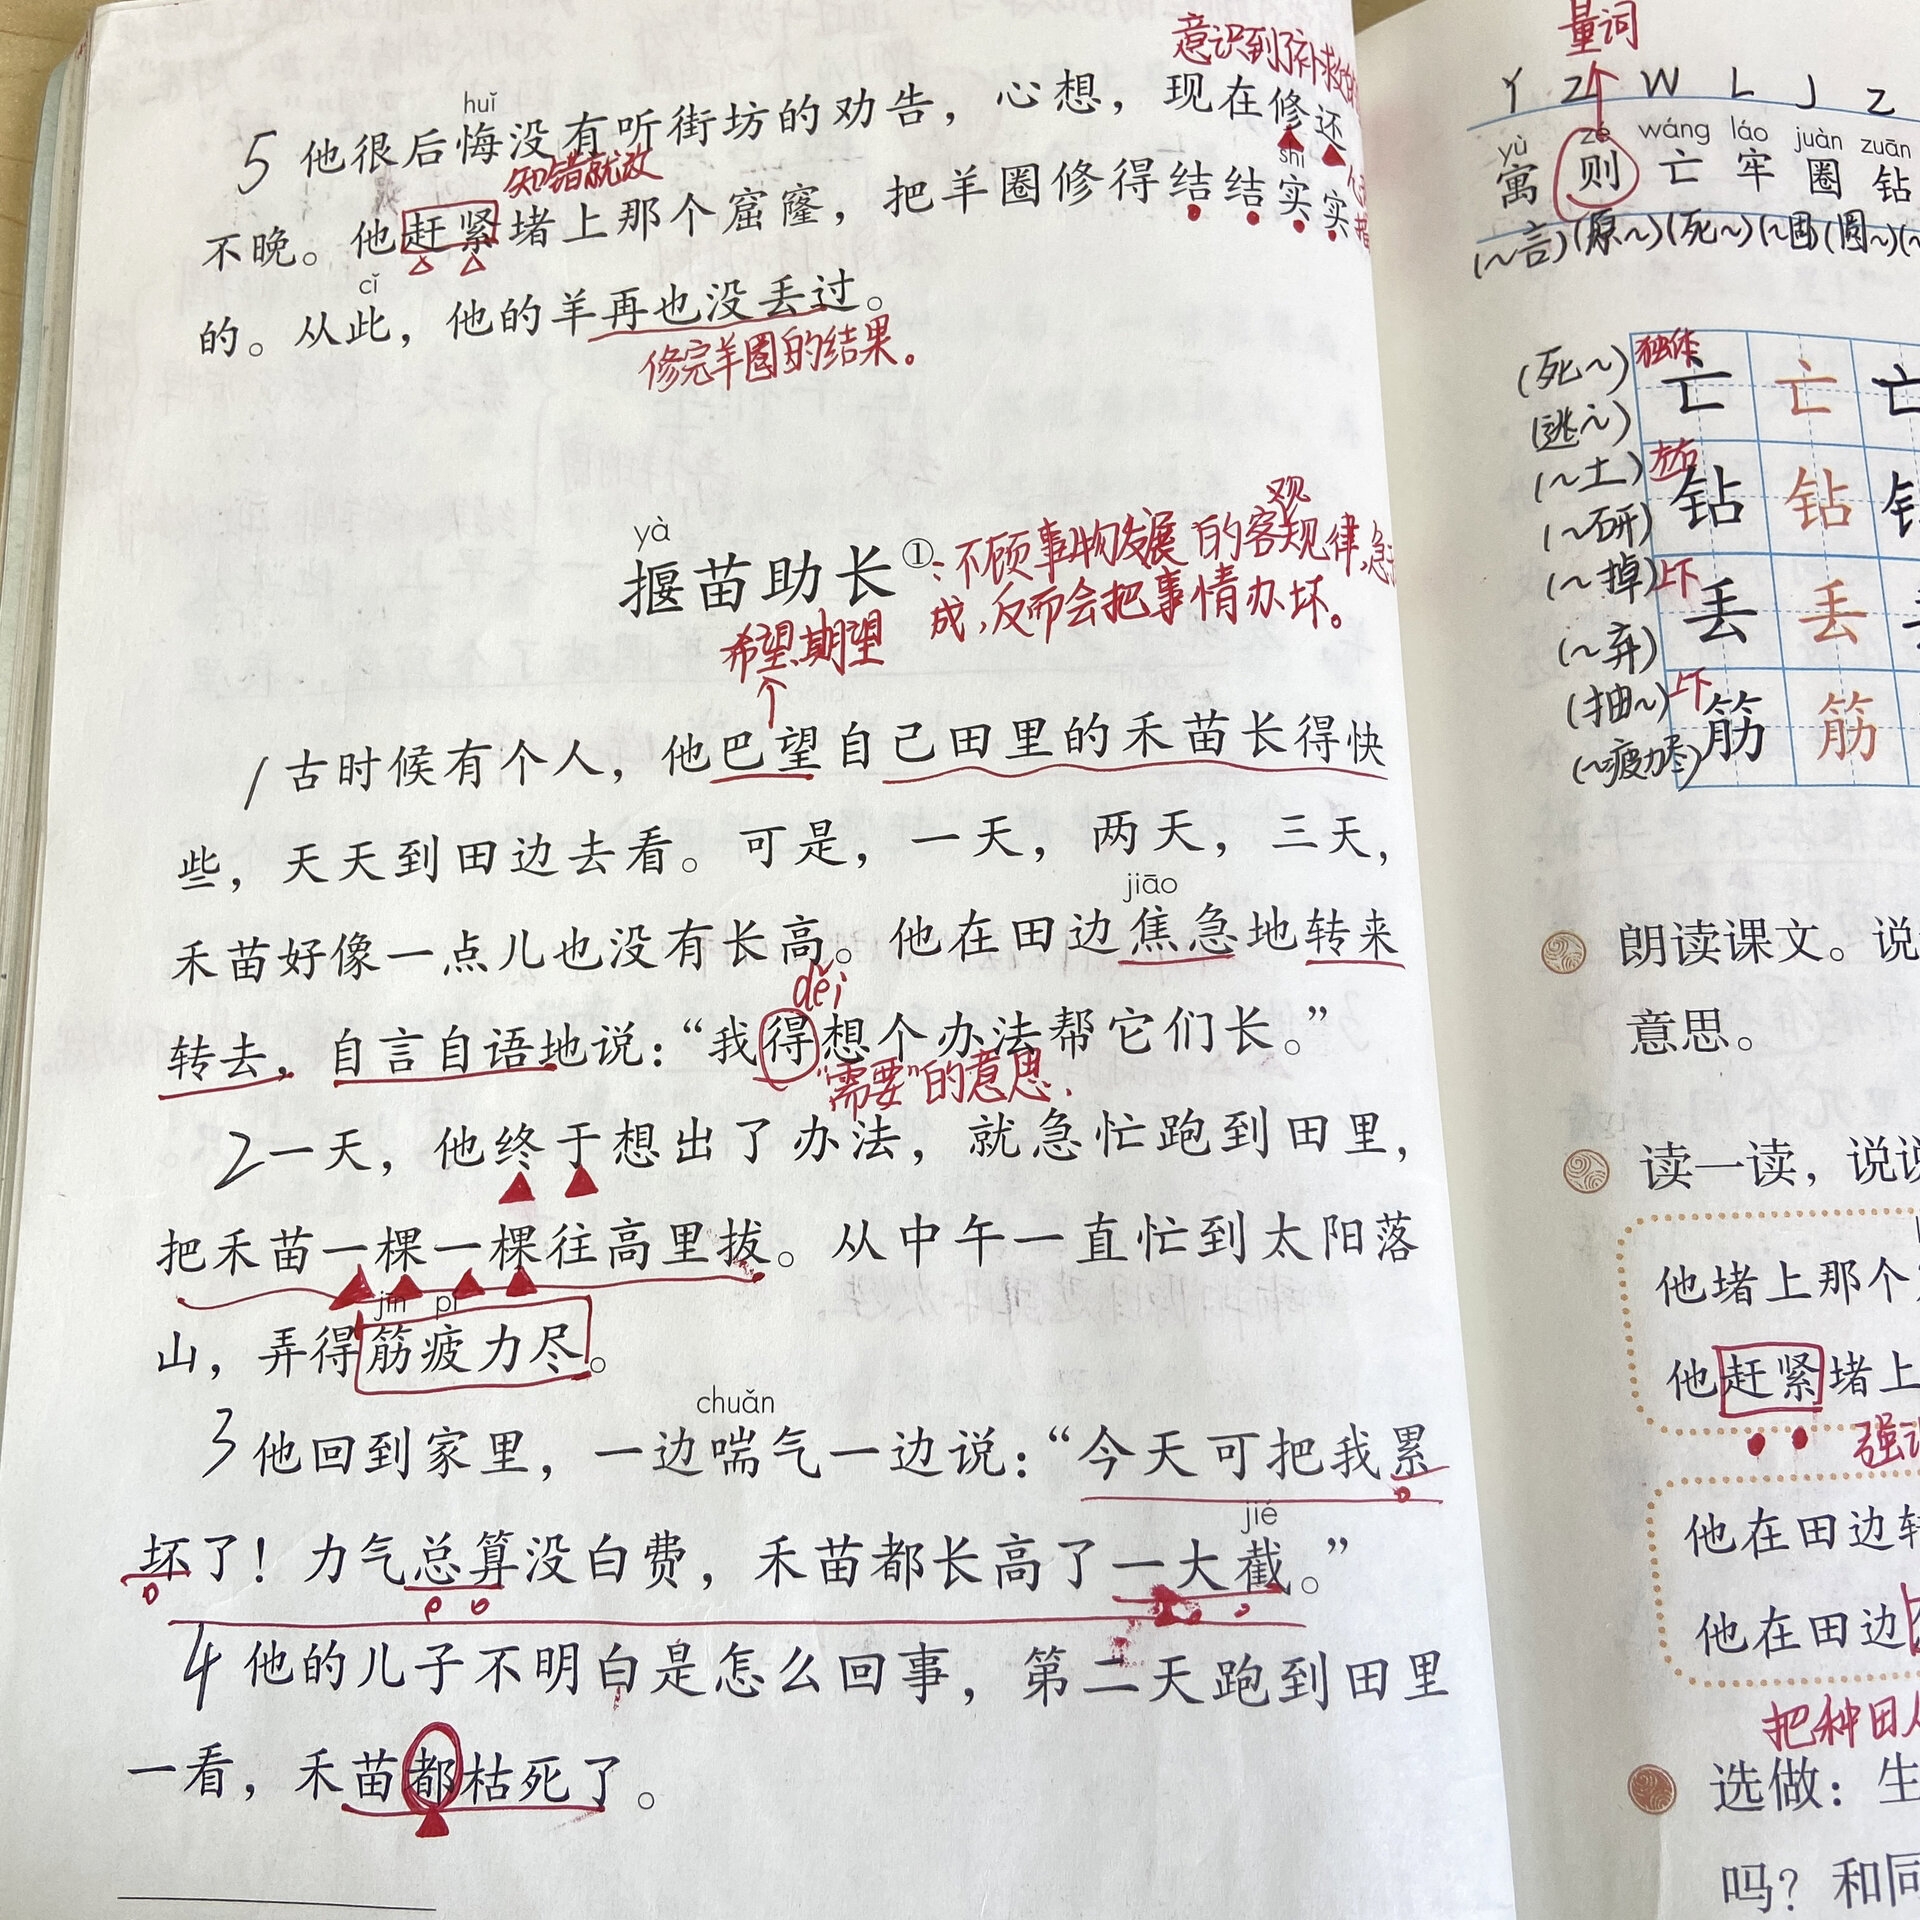 意识到了补救的
huǐ
5 他很后悔没有听街坊的劝告，心想，现在修还
知错就改
shí
不晚。他赶紧堵上那个窟窿，把羊圈修得结结实实
cǐ
的。从此，他的羊再也没丢过。
修完羊圈的结果。
yà
揠苗助长①:不顾事物发展的客观规律,急于
成,反而会把事情办坏。
希望、期望
1 古时候有个人，他巴望自己田里的禾苗长得快
些，天天到田边去看。可是，一天，两天，三天，
jiāo
禾苗好像一点儿也没有长高。他在田边焦急地转来
děi
转去，自言自语地说：“我得想个办法帮它们长。”
“需要”的意思.
2 一天，他终于想出了办法，就急忙跑到田里，
把禾苗一棵一棵往高里拔。从中午一直忙到太阳落
jīn pí
山，弄得筋疲力尽。
chuǎn
3 他回到家里，一边喘气一边说：“今天可把我累
jié
坏了！力气总算没白费，禾苗都长高了一大截。”
4 他的儿子不明白是怎么回事，第二天跑到田里
一看，禾苗都枯死了。
量词
Y Z W L J Z
yù zé wáng láo juàn zuān
寓 则 亡 牢 圈 钻
(~言)(原~)(死~)(~固)(圆~)(~
(死~) 独体 亡 亡 亡
(逃~)
(~土) 左右 钻 钻
(~研)
(~掉) 上下 丢 丢
(~弃)
(抽~) 上下 筋 筋
(~疲力尽)
朗读课文。说
意思。
读一读，说说
他堵上那个
他赶紧堵上
强调
他在田边转
他在田边
把种田人
选做：生
吗？和同